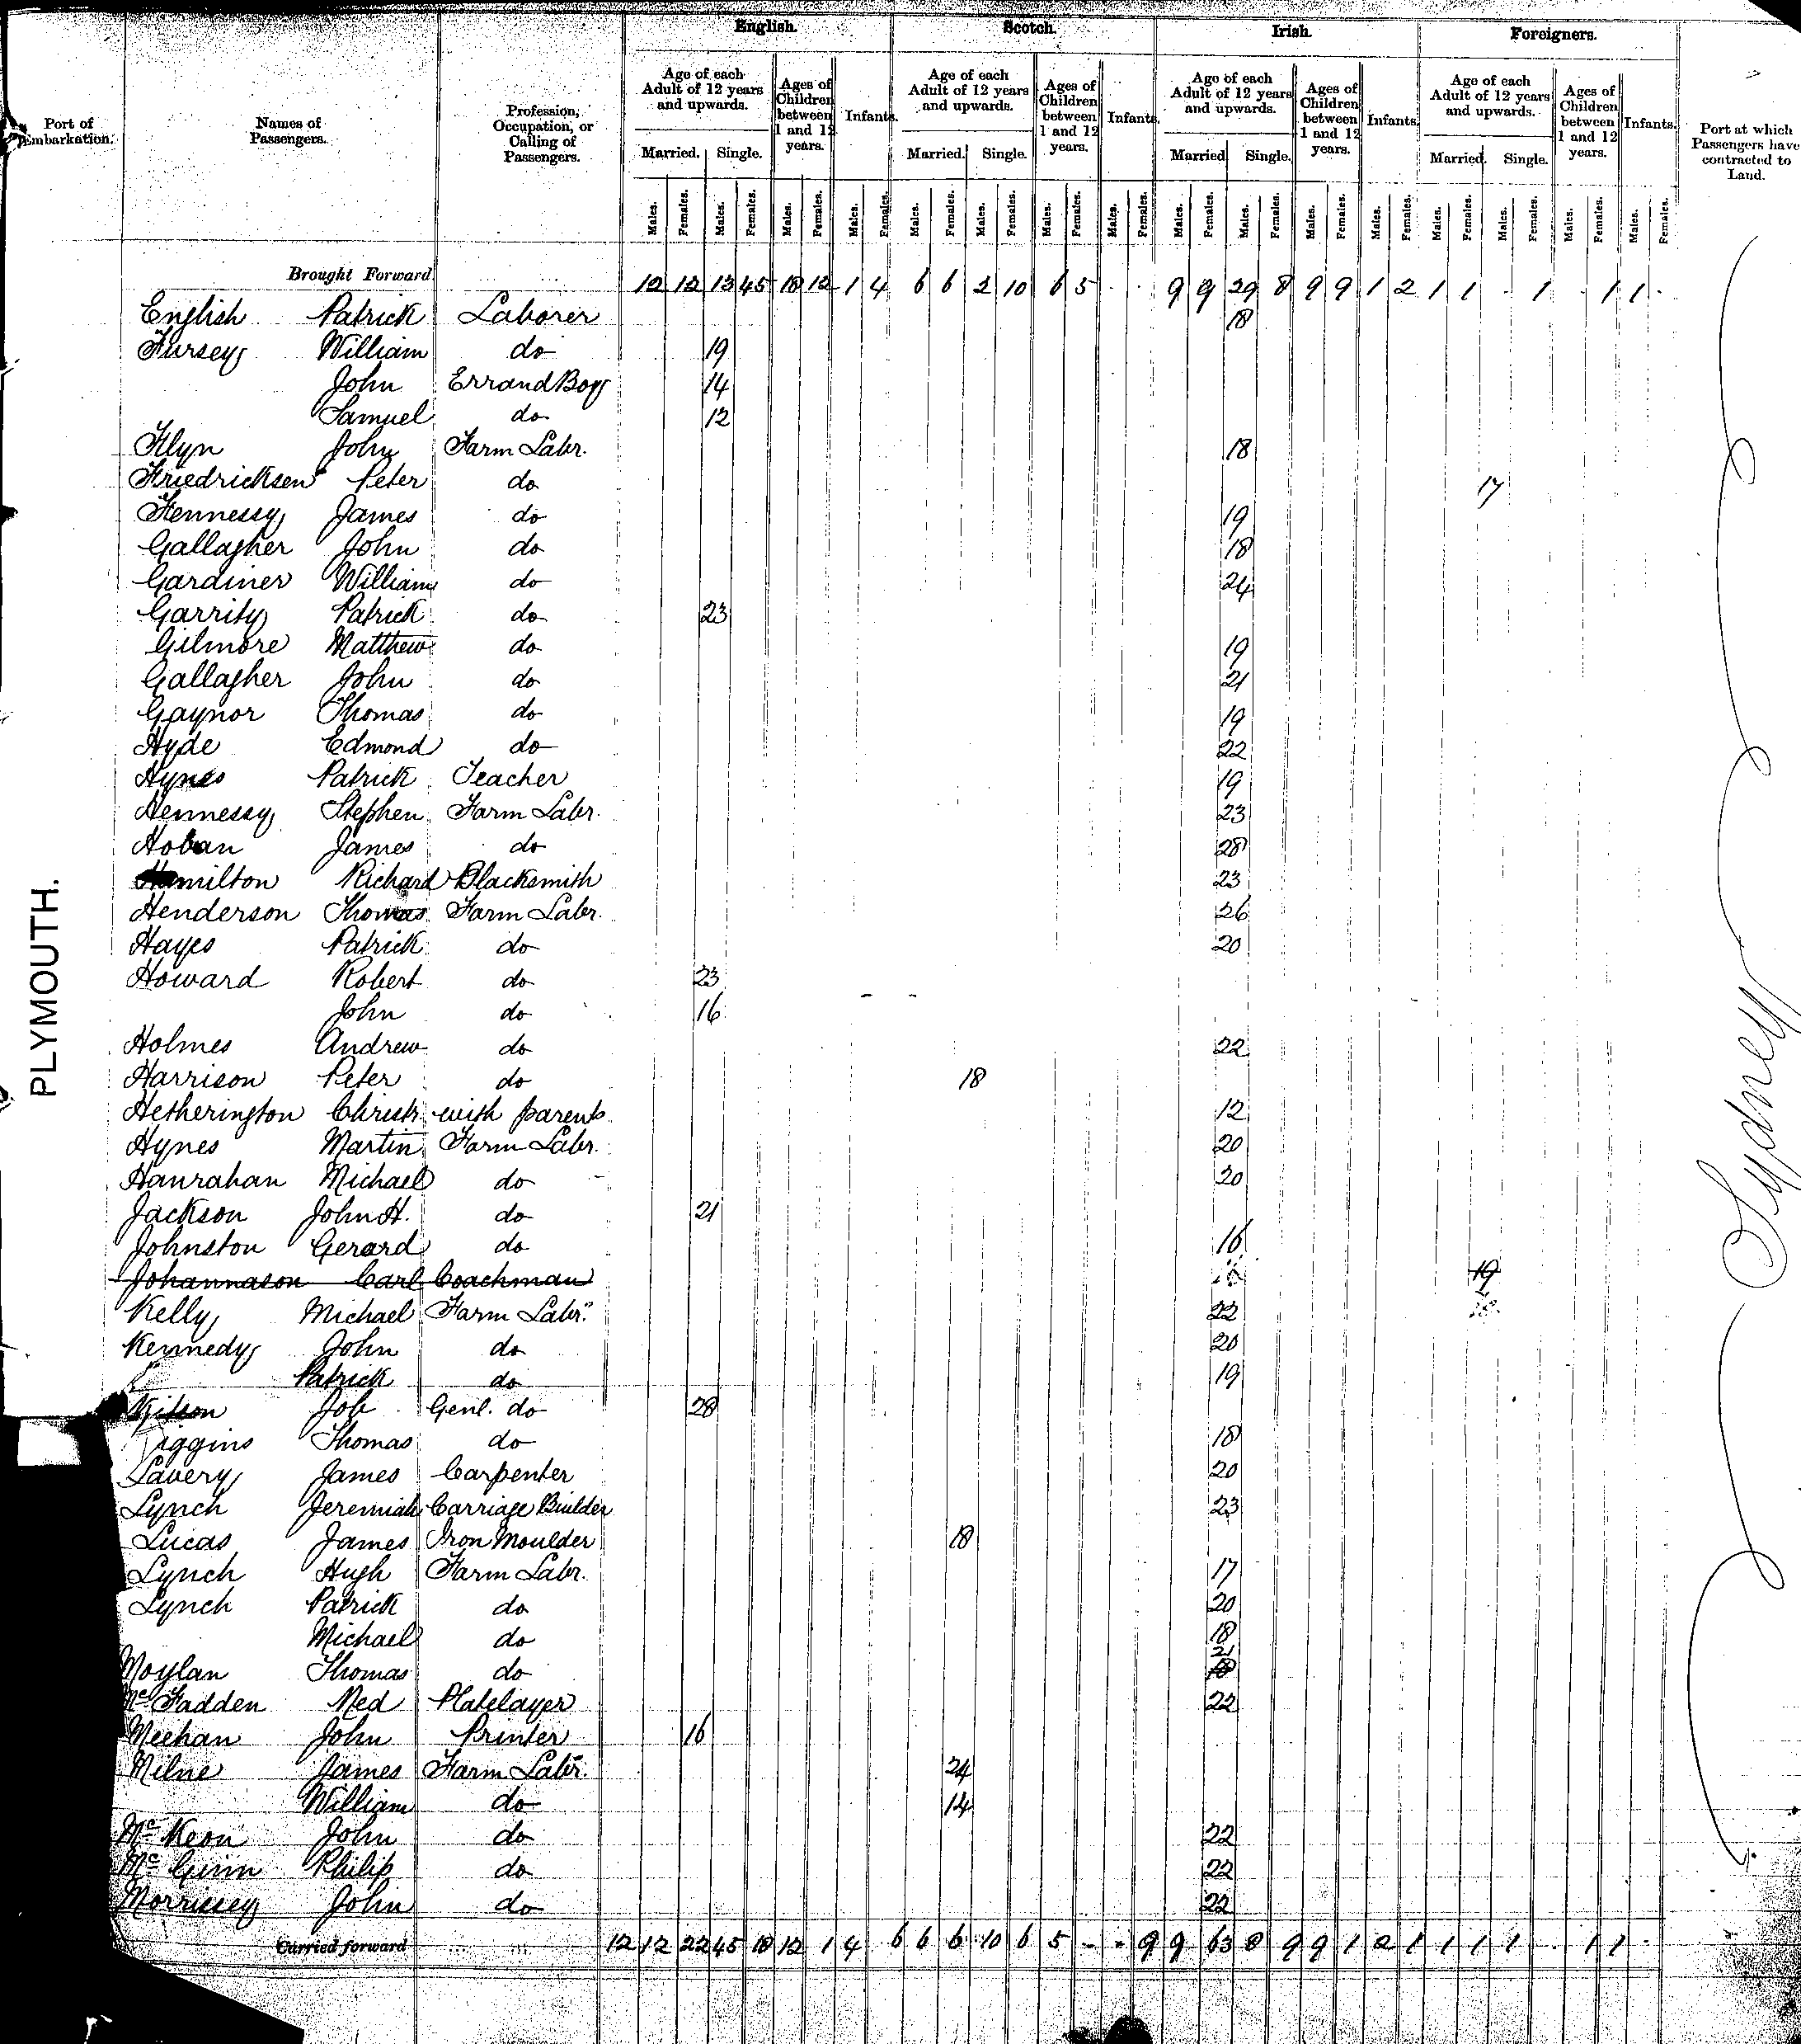 English. Scotch. Irish. Foreigners.
Port of Embarkation. Names of Passengers. Profession, Occupation, or Calling of Passengers. Age of each Adult of 12 years and upwards. Ages of Children between 1 and 12 years. Infants. Age of each Adult of 12 years and upwards. Ages of Children between 1 and 12 years. Infants. Age of each Adult of 12 years and upwards. Ages of Children between 1 and 12 years. Infants. Age of each Adult of 12 years and upwards. Ages of Children between 1 and 12 years. Infants. Port at which Passengers have contracted to Land.
Married. Single. Married. Single. Married. Single. Married. Single.
Males. Females. Males. Females. Males. Females. Males. Females. Males. Females. Males. Females. Males. Females. Males. Females. Males. Females. Males. Females. Males. Females. Males. Females. Males. Females. Males. Females. Males. Females. Males. Females.
Brought Forward 12 12 13 45 18 12 1 4 6 6 2 10 6 5 . . 9 9 29 8 9 9 1 2 1 1 . 1 . 1 1 .
English Patrick Laborer 18
Fursey William do 19
John Errand Boy 14
Samuel do 12
Flyn John Farm Labr. 18
Friedricksen Peter do 17
Fennessy James do 19
Gallagher John do 18
Gardiner William do 24
Garrity Patrick do 23
Gilmore Matthew do 19
Gallagher John do 21
Gaynor Thomas do 19
Hyde Edmond do 22
Hynes Patrick Teacher 19
Hennessy Stephen Farm Labr. 23
Hoban James do 28
Hamilton Richard Blacksmith 23
Henderson Thomas Farm Labr. 26
Hayes Patrick do 20
Howard Robert do 23
John do 16
Holmes Andrew do 22
Harrison Peter do 18
Hetherington Christr. with parents 12
Hynes Martin Farm Labr. 20
Hanrahan Michael do 20
Jackson John H. do 21
Johnston Gerard do 16
Johannason Carl Coachman 19
Kelly Michael Farm Labr. 22
Kennedy John do 20
Patrick do 19
Job Genl. do 28
iggins Thomas do 18
Lavery James Carpenter 20
Lynch Jeremiah Carriage Builder 23
Lucas James Iron Moulder 18
Lynch Hugh Farm Labr. 17
Lynch Patrick do 20
Michael do 18
Moylan Thomas do 21
McFadden Ned Platelayer 22
Meehan John Printer 16
Milne James Farm Labr. 24
William do 14
McKeon John do 22
McGinn Philip do 22
Morrissey John do 22
Carried forward 12 12 22 45 18 12 1 4 6 6 6 10 6 5 - - 9 9 63 8 9 9 1 2 1 1 1 1 . 1 1 .
PLYMOUTH.
Sydney